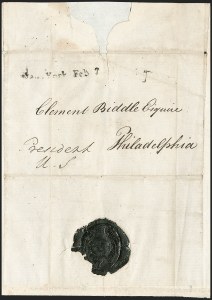 New York Feb 7
Clement Biddle Esquire
Philadelphia
President
U S